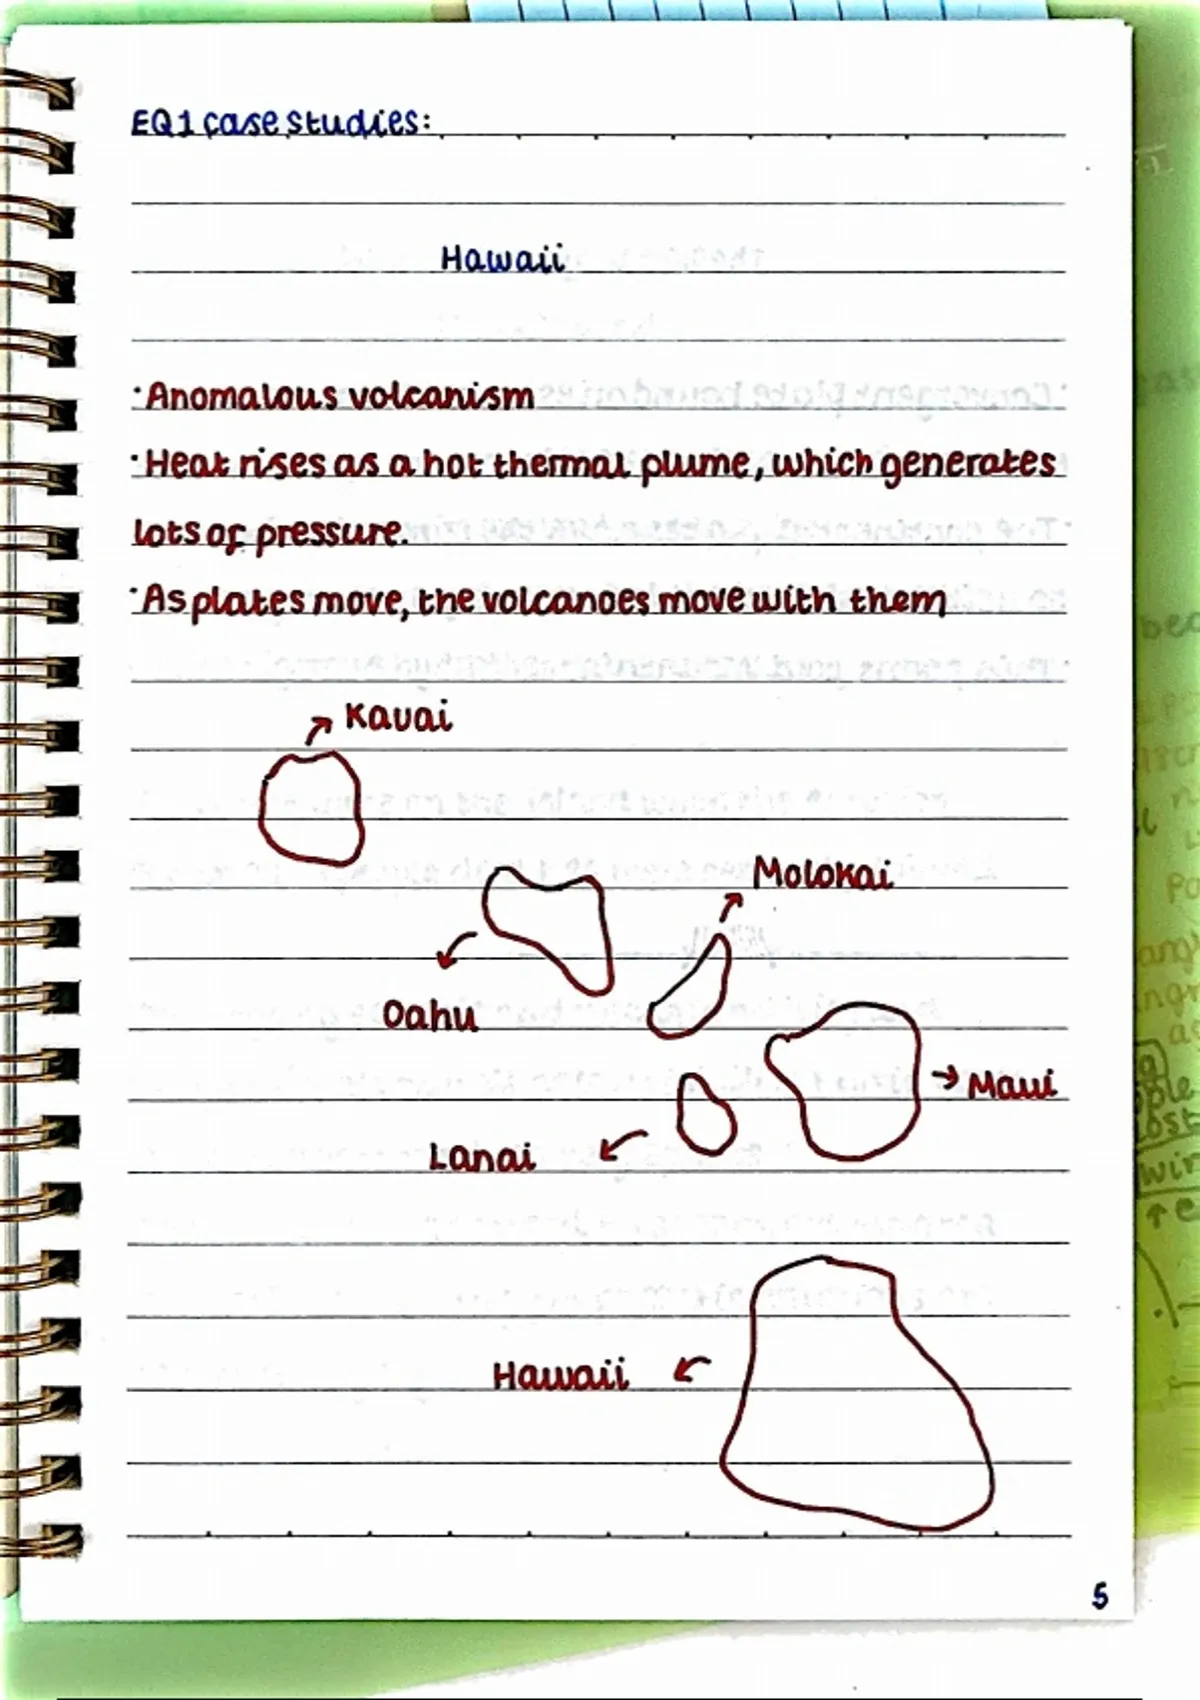 EQ1 case studies:
Hawaii
·Anomalous volcanism
·Heat rises as a hot thermal plume, which generates
lots of pressure.
·As plates move, the volcanoes move with them
Kauai
Molokai
Oahu
Maui
Lanai
Hawaii
5